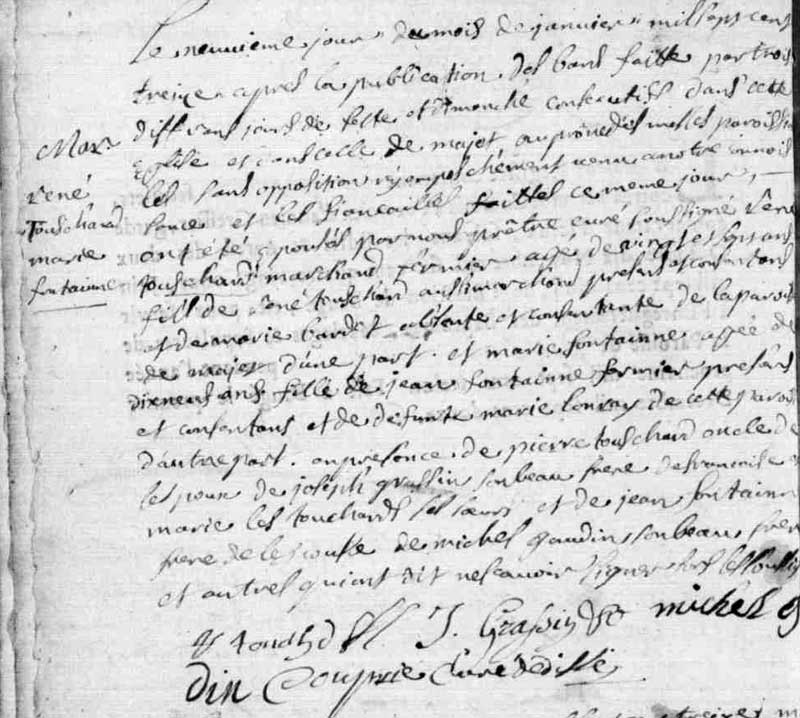 Le neuvieme jour du mois de janvier mil sept cent
treize apres la publication des bans faitte par trois
differans jours de feste et dimanche consecutifs dans cette
Eglise et dans celle de majet au prone des messes paroissia
les sans opposition ny empeschement venu a notre connois
sance et les fiancailles faittes ce meme jour,
ont été epousés par nous prêtre curé soussigné René
touschard marchand fermier agé de vingt et sept ans
fils de René touschard aussi marchand present et consentans
et de marie bardet absente et consentante de la paroisse
de majet d'une part. et marie fontainne aggée de
dix neuf ans fille de jean fontainne fermier present
et consentans et de defunte marie de cette paroi
d'autre part. en presence de pierre touschard oncle de
l'espoux de joseph grassin son beau frere de francoise
marie les touchards ses sœurs et de jean fontainne
frere de l'espouse de michel gaudin son beau frere
et autres qui ont dit ne scavoir signer fors les soussi
touchard J. Grassin michel g
din Curé de
Mar
rené
Touschard
marie
fontainne